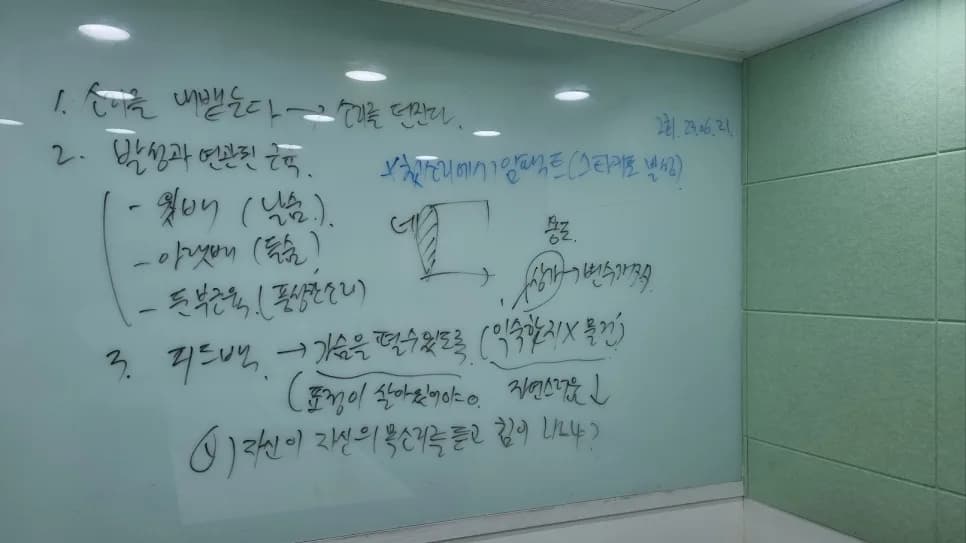 1. 소리를 내뱉는다 → 소리를 던진다.
2회. 23.06.21.
2. 발성과 연관된 근육.
*첫소리에서 임팩트(스타카토 발성)
- 윗배 (날숨.)
네
- 아랫배 (들숨)
용도.
- 둔부근육.(풍성한소리)
상개→변수개척
3. 피드백. → 가슴을 펼수있도록 (익숙한지X 물건)
(표정이 살아있어야
자연스러움↓
Q) 자신이 자신의 목소리를 듣고 힘이 나나?